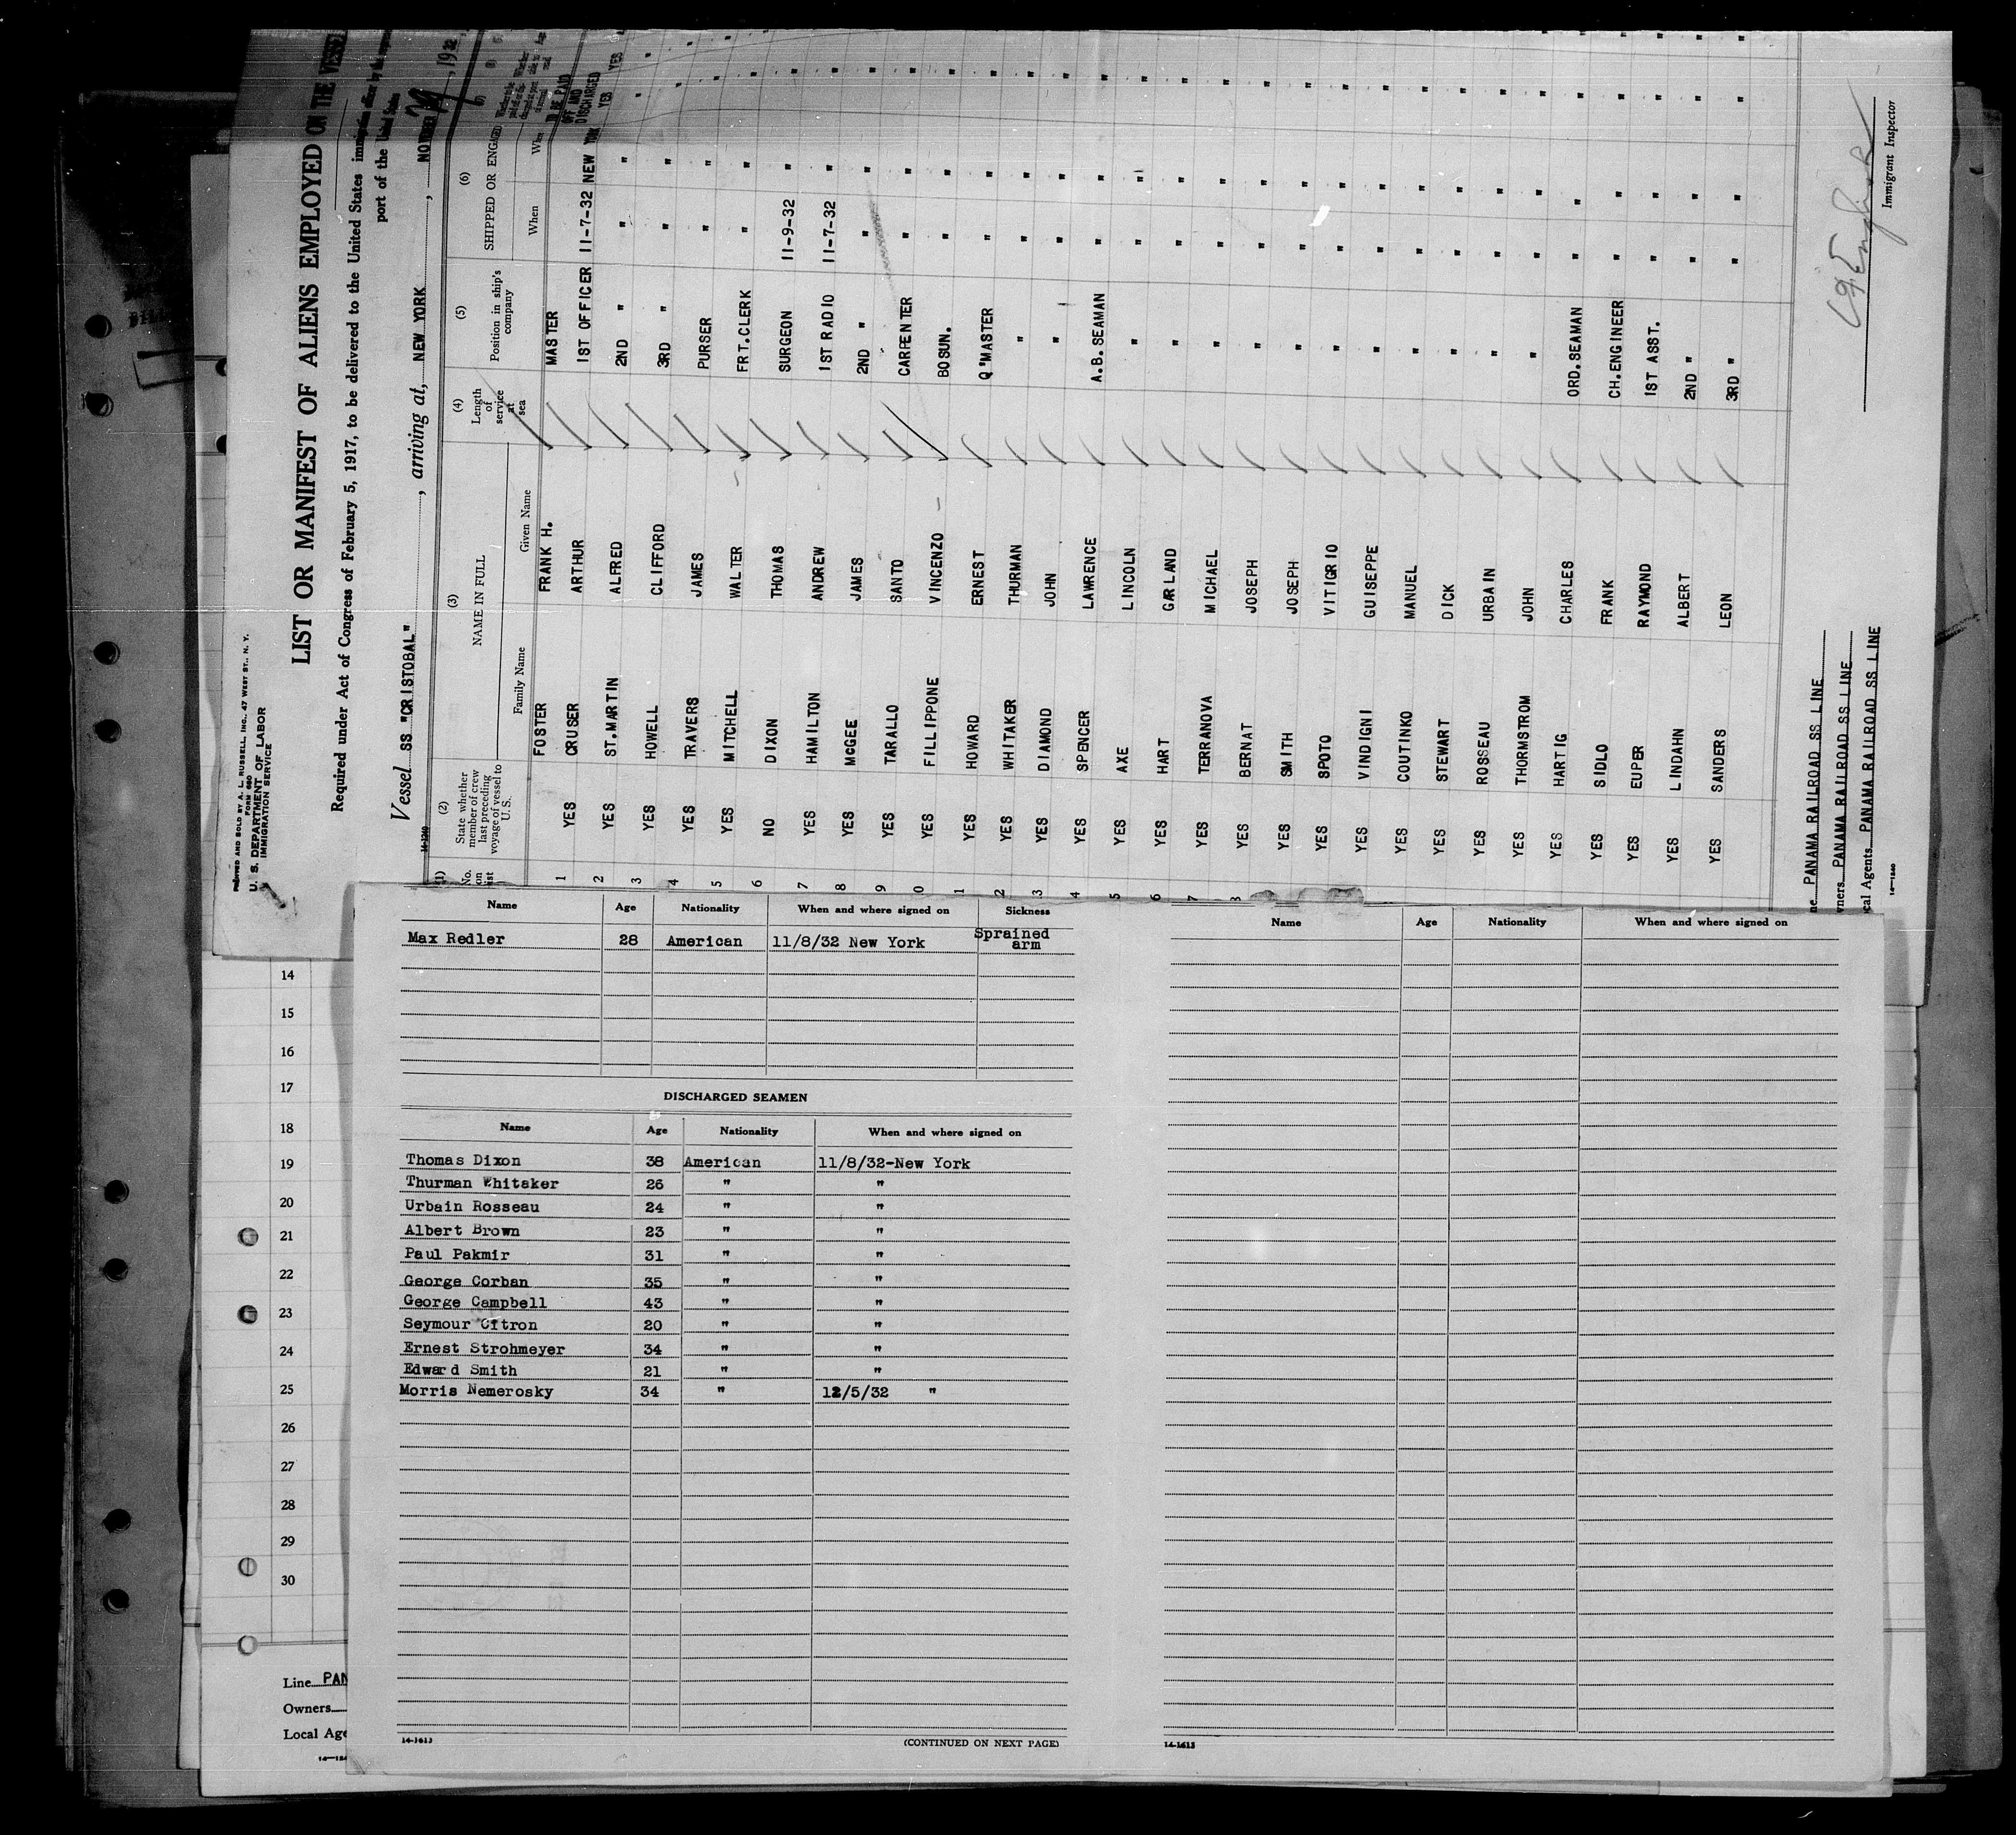 PRINTED AND SOLD BY A. L. RUSSELL, INC., 47 WEST ST., N. Y.
FORM 680
U. S. DEPARTMENT OF LABOR
IMMIGRATION SERVICE
LIST OR MANIFEST OF ALIENS EMPLOYED ON THE VESSEL
Required under Act of Congress of February 5, 1917, to be delivered to the United States immigration officer by the
port of the United States
Vessel SS "CRISTOBAL", arriving at, NEW YORK, NOVEMBER 29, 1932
14-1240
(1) (2) (3) (4) (5) (6)
No. on list State whether member of crew last preceding voyage of vessel to U. S. NAME IN FULL Family Name Given Name Length of service at sea Position in ship's company SHIPPED OR ENGAGED When
TO BE PAID OFF AND DISCHARGED
FOSTER FRANK H. MASTER
1 YES CRUSER ARTHUR 1ST OFFICER 11-7-32 NEW YORK YES
2 YES ST.MARTIN ALFRED 2ND " " " YES
3 YES HOWELL CLIFFORD 3RD " " " "
4 YES TRAVERS JAMES PURSER " " "
5 YES MITCHELL WALTER FRT.CLERK " " "
6 NO DIXON THOMAS SURGEON 11-9-32 " "
7 YES HAMILTON ANDREW 1ST RADIO 11-7-32 " "
8 YES McGEE JAMES 2ND " " " "
9 YES TARALLO SANTO CARPENTER " " "
0 YES FILLIPPONE VINCENZO BOSUN. " " "
1 YES HOWARD ERNEST Q"MASTER " " "
2 YES WHITAKER THURMAN " " " "
3 YES DIAMOND JOHN " " " "
4 YES SPENCER LAWRENCE A.B.SEAMAN " " "
5 YES AXE LINCOLN " " " "
6 YES HART GARLAND " " " "
7 YES TERRANOVA MICHAEL " " " "
8 YES BERNAT JOSEPH " " " "
YES SMITH JOSEPH " " " "
YES SPOTO VITIGRIO " " " "
YES VINDIGNI GUISEPPE " " " "
YES COUTINKO MANUEL " " " "
YES STEWART DICK " " " "
YES ROSSEAU URBAIN " " " "
YES THORMSTROM JOHN " " " "
YES HARTIG CHARLES ORD.SEAMAN " " "
YES SIDLO FRANK CH.ENGINEER " " "
YES EUPER RAYMOND 1ST ASST. " " "
YES LINDAHN ALBERT 2ND " " " "
YES SANDERS LEON 3RD " " " "
PANAMA RAILROAD SS LINE
PANAMA RAILROAD SS LINE
Agents PANAMA RAILROAD SS LINE
14-1240
Immigrant Inspector
Name Age Nationality When and where signed on Sickness
Max Redler 28 American 11/8/32 New York Sprained arm
DISCHARGED SEAMEN
Name Age Nationality When and where signed on
Thomas Dixon 38 American 11/8/32-New York
Thurman Whitaker 26 " "
Urbain Rosseau 24 " "
Albert Brown 23 " "
Paul Pakmir 31 " "
George Corban 35 " "
George Campbell 43 " "
Seymour Citron 20 " "
Ernest Strohmeyer 34 " "
Edward Smith 21 " "
Morris Nemerosky 34 " 12/5/32 "
14-1613
(CONTINUED ON NEXT PAGE)
Name Age Nationality When and where signed on
14-1613
14
15
16
17
18
19
20
21
22
23
24
25
26
27
28
29
30
Line PAN
Owners
Local Age